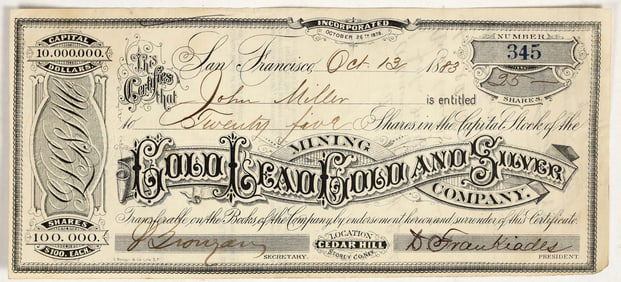 INCORPORATED
OCTOBER 26TH 1878.
CAPITAL
10.000.000.
DOLLARS.
NUMBER
345
This Certifies that
San Francisco, Oct 13 1883
25
SHARES.
John Miller is entitled
to Twenty five Shares in the Capital Stock of the
GOLD LEAD GOLD AND SILVER
MINING
COMPANY.
Transferable on the Books of the Company, by endorsement hereon and surrender of this Certificate
SHARES
100.000.
$100. EACH.
SECRETARY.
LOCATION
CEDAR HILL
STOREY CO. NEV.
PRESIDENT.